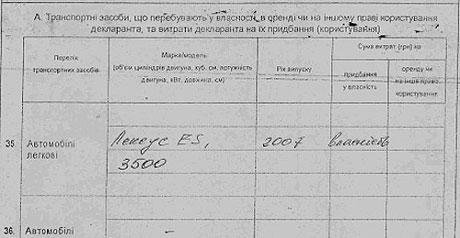 А. Транспортні засоби, що перебувають у власності, в оренді чи на іншому праві користування
декларанта, та витрати декларанта на їх придбання (користування)
Перелік
транспортних засобів
Марка/модель
(об'єм циліндрів двигуна, куб. см, потужність
двигуна, кВт, довжина, см)
Рік випуску
Сума витрат (грн) на
придбання
у власність
оренду чи
на інше право
користування
35. Автомобілі
легкові
Лексус ES,
3500
2007
власність
36. Автомобілі